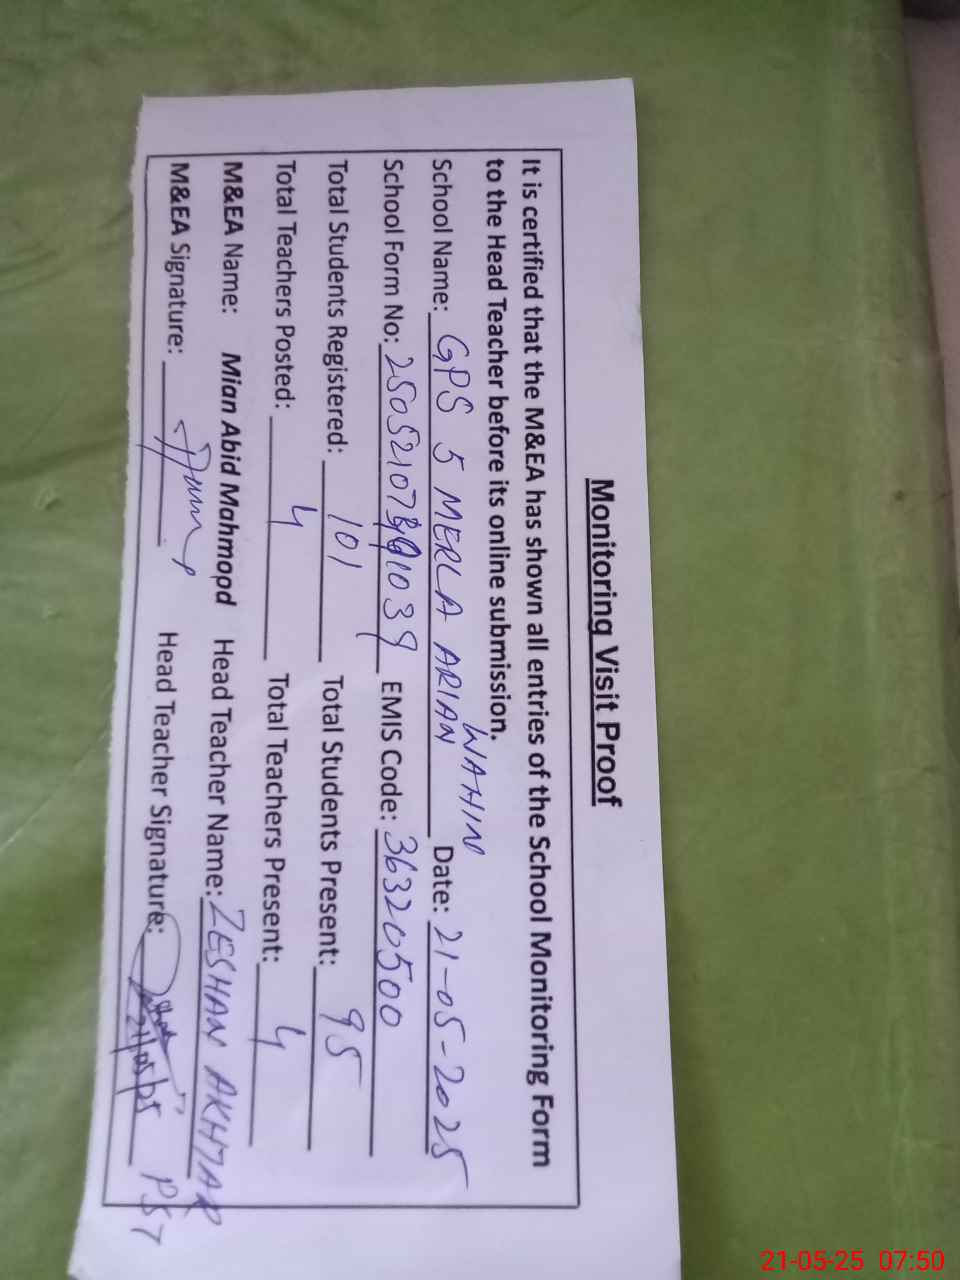 Monitoring Visit Proof
It is certified that the M&EA has shown all entries of the School Monitoring Form
to the Head Teacher before its online submission.
School Name: GPS 5 MERLA ARIAN WAHIN Date: 21-05-2025
School Form No: EMIS Code: 36320500
Total Students Registered: 101 Total Students Present: 95
Total Teachers Posted: 4 Total Teachers Present: 4
M&EA Name: Mian Abid Mahmopd Head Teacher Name: ZESHAN AKHTAR
M&EA Signature: Head Teacher Signature: 21/05/25 PST
21-05-25 07:50